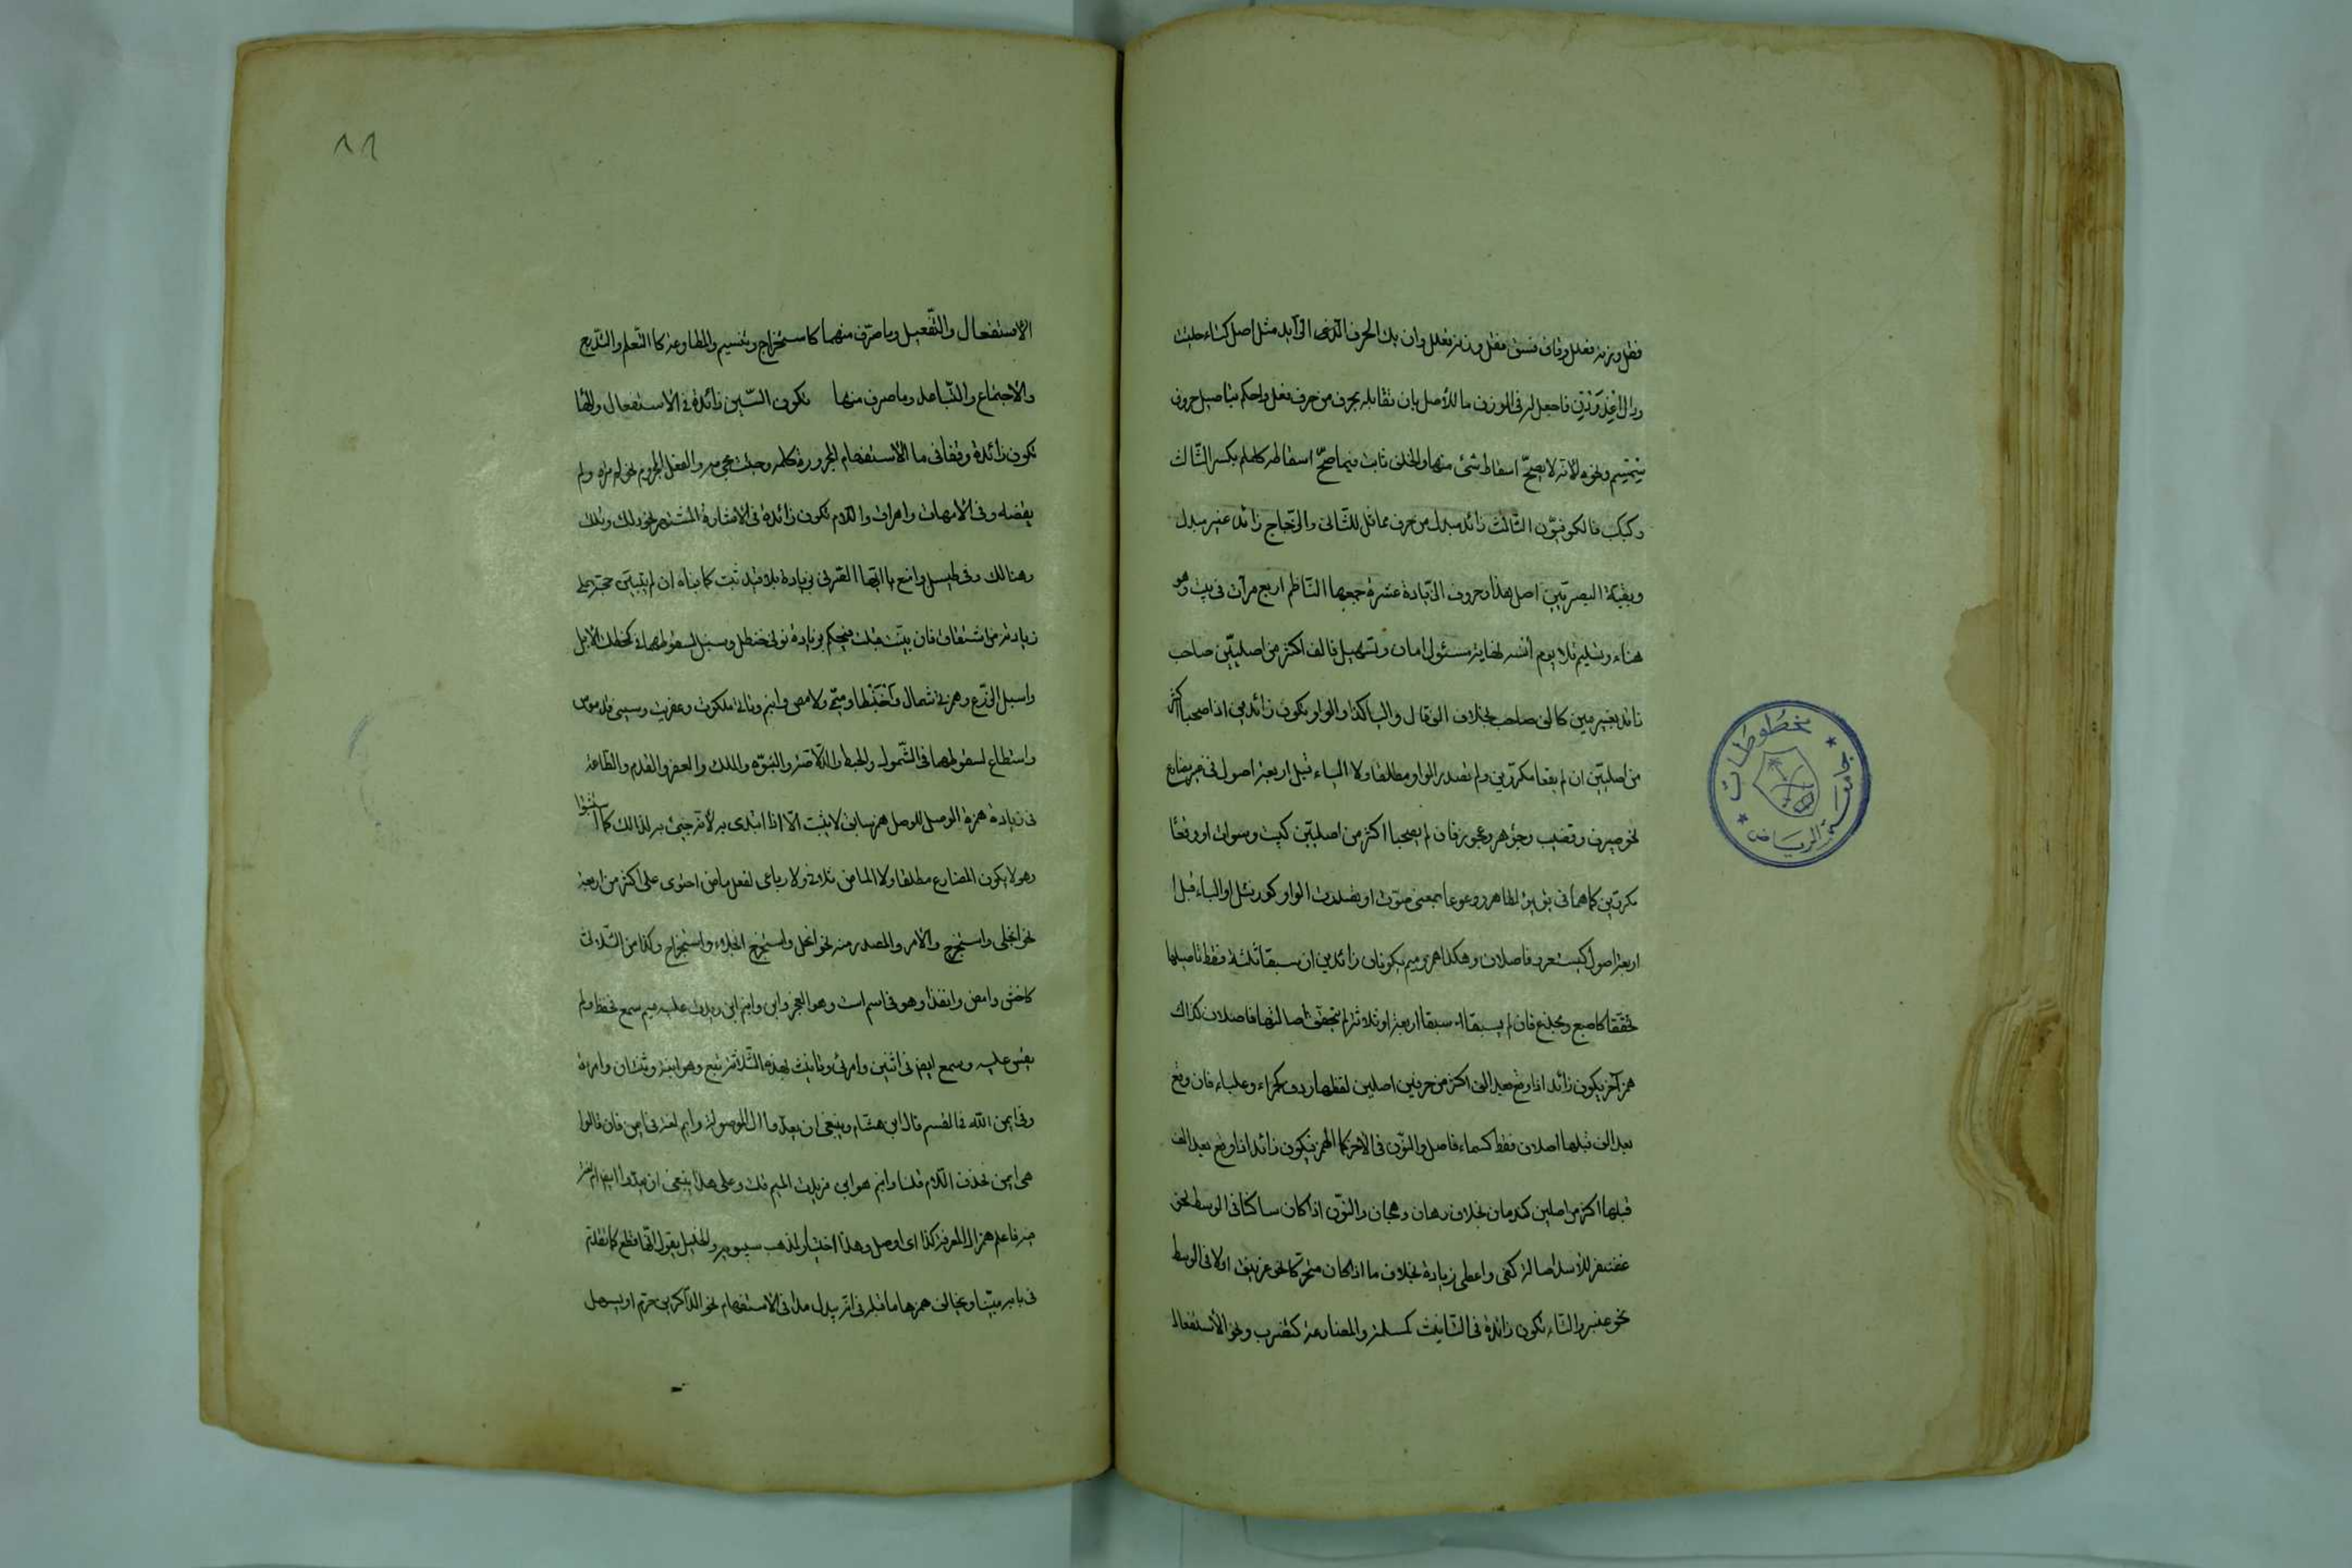 فقل وزنه فعلل وقاف فستق فقل وزنه فعلل وان يك الحرف الزائد مثل اصل كتاء حلتيت
ودال اغدودن فاجعل له في الوزن ما للأصل بان تقابله بحرف من حرف فعل واحكم بتأصيل حروف
سمسم ونحوه لأنه لا يصح اسقاط شئ منها والخلف ثابت فيما صح اسقاطه كلملم بكسر الثالث
وكبكب فالكوفيون الثالث زائد مبدل من حرف مماثل للثاني والزجاج زائد غير مبدل
وبقية البصريين اصل هذا وحروف الزيادة عشرة جمعها الناظم اربع مرات في بيت وهو
هناء وتسليم تلا يوم أنسه نهاية مسئول امان وتسهيل فالف اكثر من اصليين صاحب
زائد بغير مين كالف صاحب بخلاف الف قال واليا كذا والواو يكون زائدين اذا صحبا اكثر
من اصليين ان لم يقعا مكررين ولم تصدر الواو مطلقا ولا الياء قبل اربعة اصول في غير مضارع
نحو صيرف وقضيب وجوهر وعجوز فان لم يصحبا اكثر من اصليين كبيت وسوط او وقعا
مكررين كما هما في يؤيؤ لطاهر ووعوعا بمعنى صوت او تصدرت الواو كورنتل او الياء قبل
اربعة اصول كيستعور فاصلان وهكذا همز وميم يكونان زائدين ان سبقا ثلثة فقط تأصيلها
تحققا كاصبع ومخدع فان لم يسبقا او سبقا اربعة او ثلاثة لم يتحقق اصالتها فاصلان كذاك
همز آخر يكون زائد اذا وقع بعد الف اكثر من حرفين اصلين لفظها ردف كحمراء وعلباء فان وقع
بعد الف قبلها اصلان فقط كسماء فاصل والنون في الآخر كالهمز فيكون زائد اذا وقع بعد الف
قبلها اكثر من اصلين كندمان بخلاف رهان وهجان والنون اذا كان ساكنا في الوسط نحو
غضنفر للأسد اصالة كفى واعطى زيادة بخلاف ما اذا كان متحركا نحو غرنيق اولا في الوسط
نحو عنبر والتاء تكون زائدة في التأنيث كمسلمة والمضارعة كتضرب ونحو الأستفعال
١١
الاستفعال والتفعيل وما صرف منهما كاستخراج وتنسيم والمطاوعة كا التعلم والتدحرج
والاجتماع والتباعد وما صرف منها تكون السين زائدة في الاستفعال والها
تكون زائدة وقفا في ما الاستفهام المجرورة كلمه وجئت مجئ مه والفعل المجزوم نحو لم تره ولم
يقضه وفي الامهات واهراق واللام تكون زائدة في الاشارة المشتهر نحو ذلك وتلك
وهنالك وفي طيسل وامنع يا ايها الصرفي زيادة بلا قيد ثبت كما بيناه ان لم تبين حجة على
زيادته من اشتقاق فان بينت قبلت فيحكم بزيادة نوني حنظل وسنبل لسقوطهما في كحظلت الأبل
واسبل الزرع وهمزتي شمأل واحبنطأ وميمي دلامص وابنم وتائي ملكوت وعفريت وسيني قدموس
واستطاع لسقوطها في الشمول والحبط والدلاصة والبنوة والملك والعفر والقدم والطاعة
في زيادة همزة الوصل للوصل همز سابق لا يثبت الا اذا ابتدى به لأنه جيئ به لذالك كاستثبتوا
وهو لا يكون المضارع مطلقا ولا الماضي ثلاثي ولا رباعي لفعل ماض احتوى على اكثر من اربعة
نحو انجلى واستخرج والأمر والمصدر منه نحو انجل واستخرج انجلاء واستخراج وكذا من الثلاثي
كاخش وامض وانفذا وهو في اسم است وهو العجز وابن وابنم ابن زيدت عليه ميم سمع فحفظ ولم
يقس عليه وسمع ايضا في اثنين وامرئ وتأنيث لهذه الثلاثة تبع وهو ابنة وثنتان وامرأة
وفي ايمن الله في القسم قال ابن هشام وينبغي ان يعدوا ال الموصولة وايم لغة في ايمن فان قالوا
هي ايمن حذفت اللام قلنا وابنم هو ابن فزيدت الميم قلت وعلى هذا ينبغي ان يعدوا ايضا
فاعلم همز ال المعرفة كذا اى اوصل وهذا اختيار لمذهب سيبويه والخليل يقول انها قطع كما تقدم
في بابه مبينا ويخالف همزها ما قبله في انه يبدل مدا في الاستفهام نحو الذاكرين حرم او يسهل
مخطوطات
جامعة الرياض